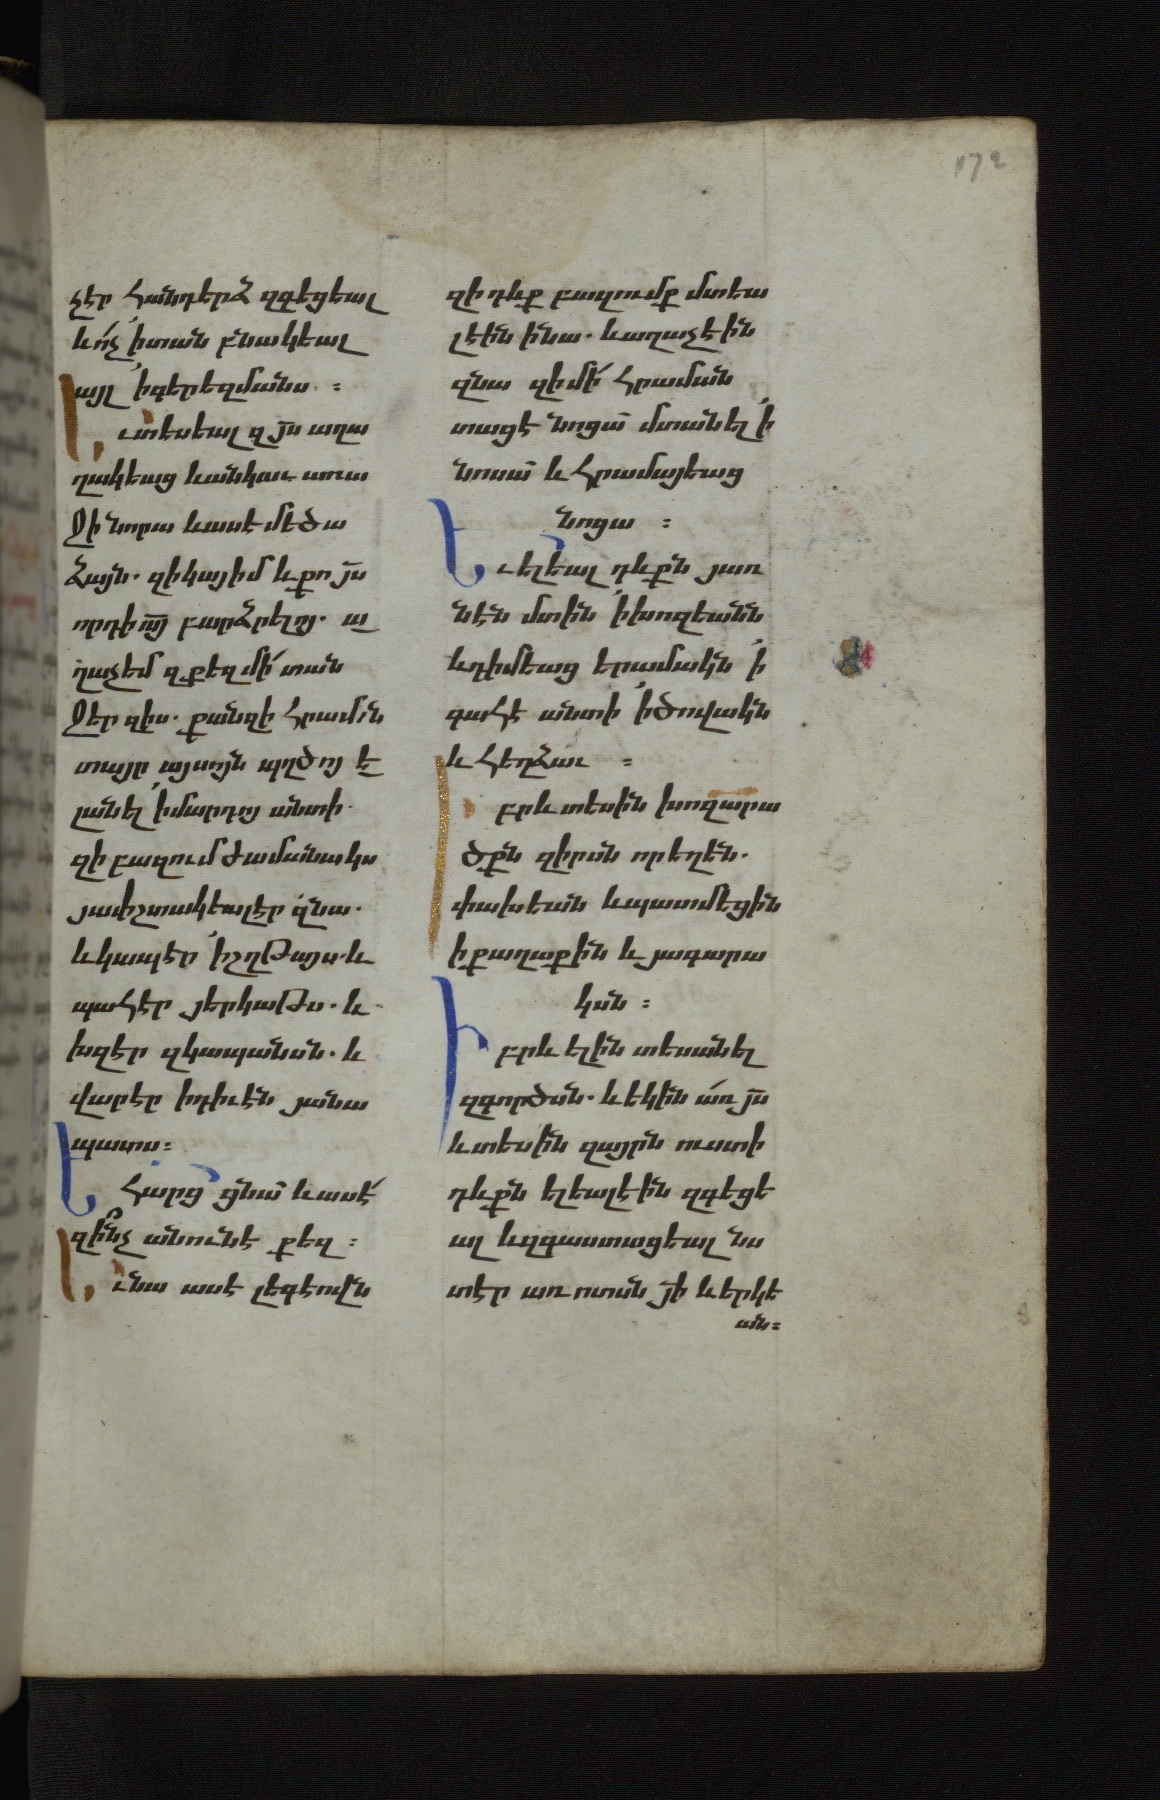 172
չէր հանդերձ զգեցեալ
և ո՛չ ՛ի տան բնակեալ
այլ ՛ի գերեզմանս ։
Իւ տեսեալ զյ̅ս աղա
ղակեաց և անկաւ առա
ջի նորա և ասէ մեծա
ձայն. զի կայ իմ և քո յ̅ս
որդի ա̅յ բարձրելոյ. ա
ղաչեմ զքեզ մի՛ տան
ջեր զիս. քանզի հրամ̅ն
տայր այսոյն պղծոյ ե
լանել ՛ի մարդոյ անտի.
զի բազում ժամանակս
յափշտակեալ էր զնա.
և կապէր ՛ի շղթայս. և
պահէր յերկաթս. և
խզէր զկապանսն. և
վարէր ՛ի դիւէն յանա
պատս։
Եհարց ց̅նա և ասէ՛
զի՞նչ անուն է քեզ ։
Իւ նա ասէ լեգէովն
զի դևք բազումք մտեա
լ էին ի նա. և աղաչէին
զնա զի մի՛ հրաման
տացէ նոցա մտանել ՛ի
նոսա և հրամայեաց
նոցա ։
Ե̅ւ ելեալ դևքն յառ
նէն մտին ՛ի խոզեանն
և դիմեաց երամակն ՛ի
գահէ անտի ՛ի ծովակն
և հեղձաւ ։
Իբրև տեսին խոզարա
ծքն զիրսն որ եղեն.
փախեան և պատմեցին
ի քաղաքին և յագարա
կսն ։
Իբրև ելին տեսանել
զգործսն. և եկին ա՛ռ յ̅ս
և տեսին զայրն ուստի
դևքն ելեալ էին զգեցե
ալ և զգաստացեալ նս
տէր առ ոտսն յ̅ի և երկե
ան։